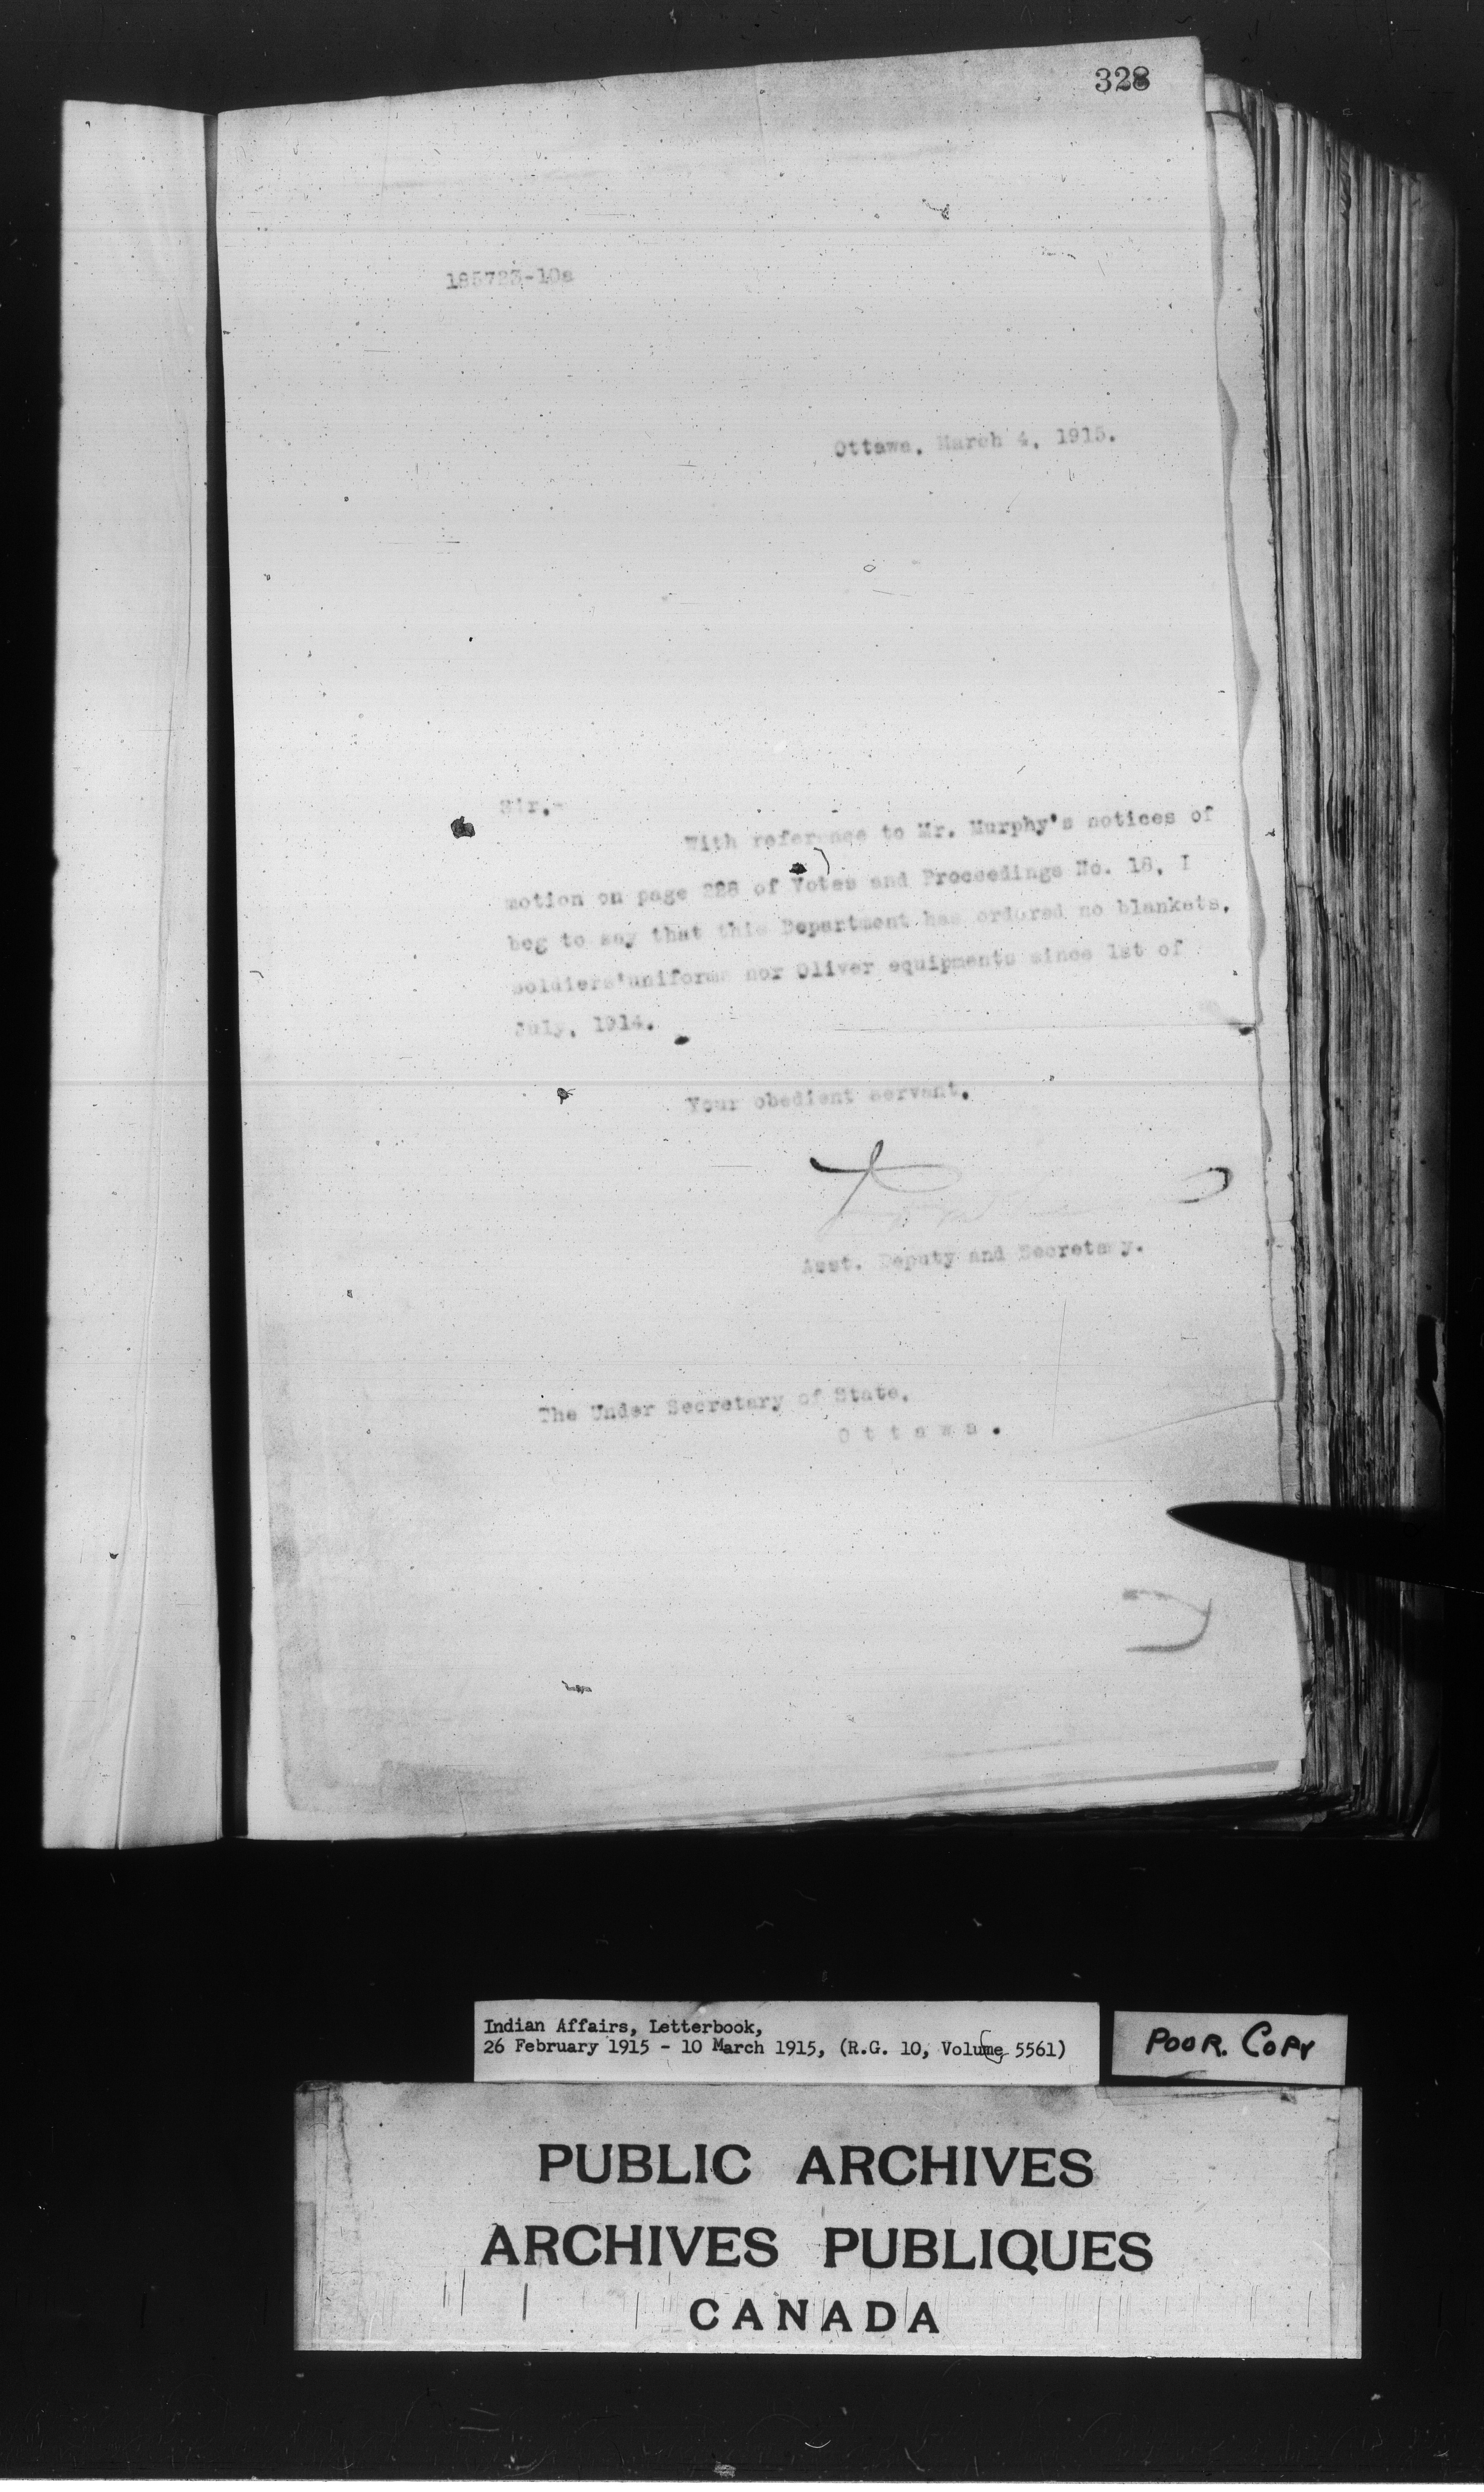 328
185723-10a
Ottawa, March 4, 1915.
Sir,-
With reference to Mr. Murphy's notices of
motion on page 228 of Votes and Proceedings No. 18, I
beg to say that this Department has ordered no blankets,
soldiers'uniforms nor Oliver equipments since 1st of
July, 1914.
Your obedient servant,
Asst. Deputy and Secretary.
The Under Secretary of State,
Ottawa.
Indian Affairs, Letterbook,
26 February 1915 - 10 March 1915, (R.G. 10, Volume 5561)
POOR. COPY
PUBLIC ARCHIVES
ARCHIVES PUBLIQUES
CANADA